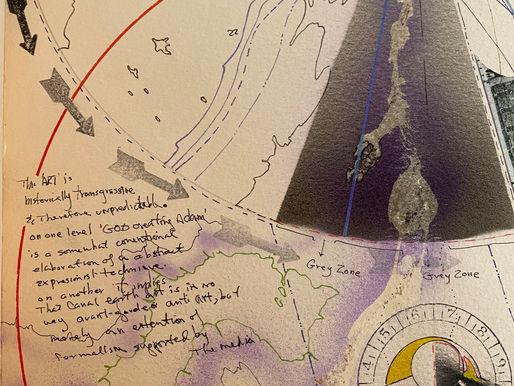 The ART is
historically transgressive
& Therefore unpredictable.
on one level 'GOD creating Adam
is a somewhat conventional
elaboration of abstract
expressionist technique
on another IT implies
That Canal earth art is in no
way avant-garde or anti Art, but
merely an extention of
Formalism supported by The media
Grey Zone
Grey Zone
14 15 16 17 18 19